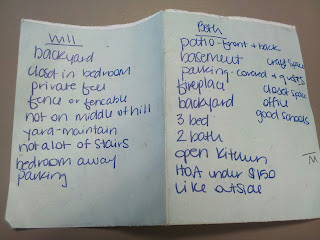 Will
backyard
closet in bedroom
private feel
fence or fencable
not on middle of hill
yard-maintain
not a lot of stairs
bedroom away
parking
Both
patio-front + back
basement craft space
parking-covered + guests
fireplace closet space
backyard office
3 bed good schools
2 bath
open kitchen
HOA under $150
like outside